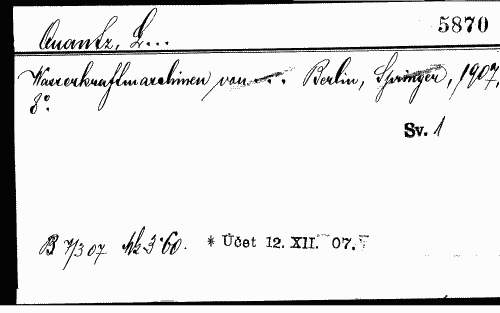 5870
Quantz, L...
Wasserkraftmaschinen von ... Berlin, Springer, 1907,
8°.
Sv. 1
B 7/3 07 Mk 3·60. * Účet 12. XII. 07.